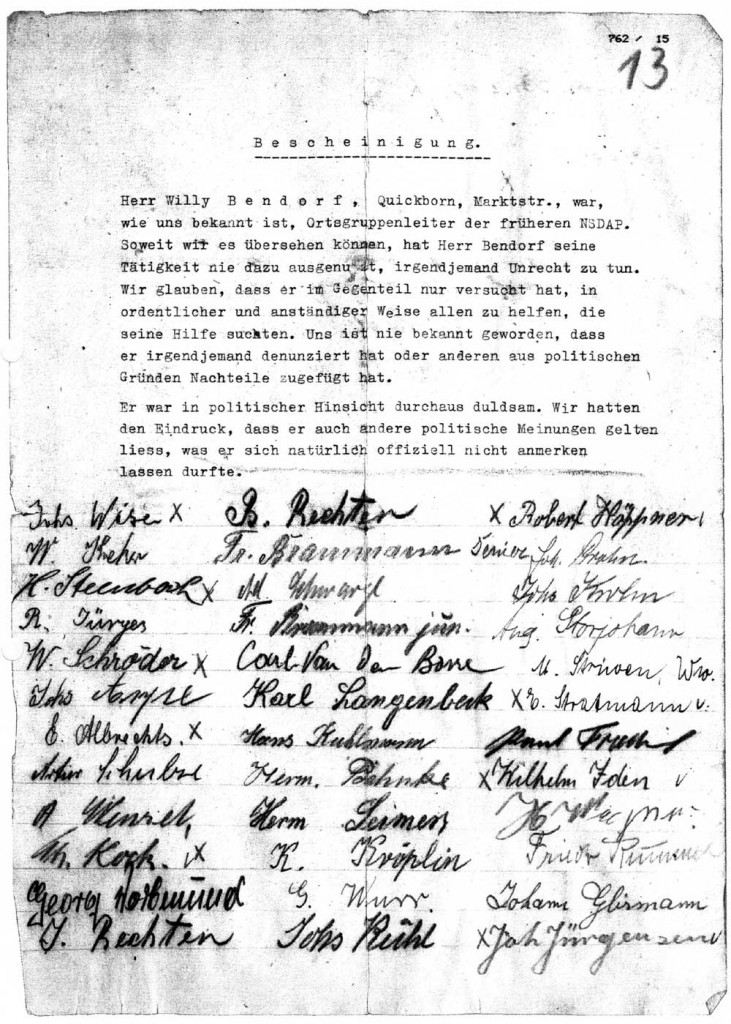 762 / 15
13
Bescheinigung.
Herr Willy Bendorf, Quickborn, Marktstr., war,
wie uns bekannt ist, Ortsgruppenleiter der früheren NSDAP.
Soweit wir es übersehen können, hat Herr Bendorf seine
Tätigkeit nie dazu ausgenutzt, irgendjemand Unrecht zu tun.
Wir glauben, dass er im Gegenteil nur versucht hat, in
ordentlicher und anständiger Weise allen zu helfen, die
seine Hilfe suchten. Uns ist nie bekannt geworden, dass
er irgendjemand denunziert hat oder anderen aus politischen
Gründen Nachteile zugefügt hat.
Er war in politischer Hinsicht durchaus duldsam. Wir hatten
den Eindruck, dass er auch andere politische Meinungen gelten
liess, was er sich natürlich offiziell nicht anmerken
lassen durfte.
Johs Wise x B. Rechten x Robert Höppner
W. Fr. Brammann Senior Joh.
H. Steenbock x Ad. Schwarz Johs Krohn
R. Jürges Fr. Brammann jun. Aug. Storjohann
W. Schröder x Carl Van Den Borre M. Striwen, Ww.
Johs Karl Langenbeck x E. Stratmann
E. Albrechts. x Hans Kuhlmann Paul
Artur Schulze Herm. Behnke x Wilhelm Iden
A Wenzel, Herm Seimers H
Kock. x K. Kröplin Friedr
Georg Horbmund G. Wurr. Johann Glismann
J. Rechten Johs Kühl x Joh Jürgensen